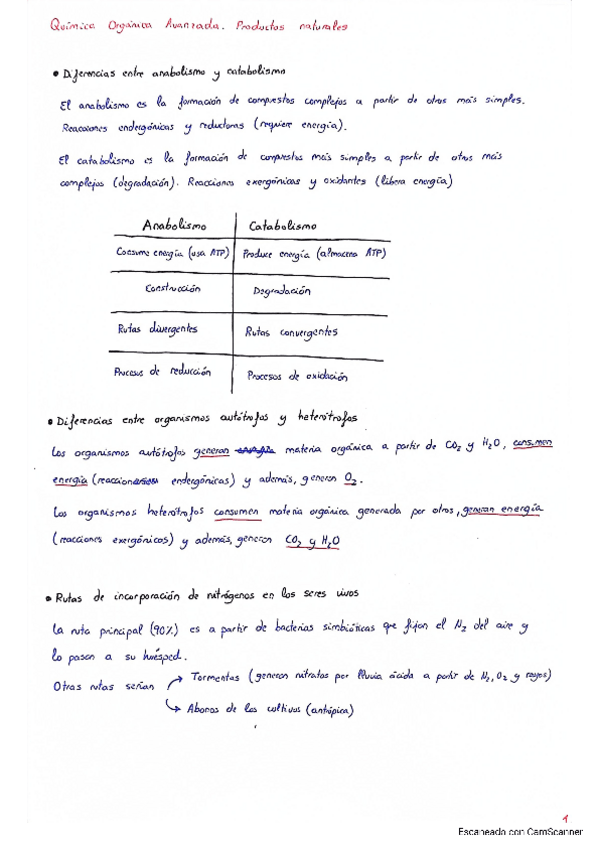 Química Orgánica Avanzada. Productos naturales
• Diferencias entre anabolismo y catabolismo
El anabolismo es la formación de compuestos complejos a partir de otros más simples.
Reacciones endergónicas y reductoras (requiere energía).
El catabolismo es la formación de compuestos más simples a partir de otros más
complejos (degradación). Reacciones exergónicas y oxidantes (libera energía)
Anabolismo Catabolismo
Consume energía (usa ATP) Produce energía (almacena ATP)
Construcción Degradación
Rutas divergentes Rutas convergentes
Procesos de reducción Procesos de oxidación
• Diferencias entre organismos autótrofos y heterótrofos
Los organismos autótrofos generan materia orgánica a partir de CO2 y H2O, consumen
energía (reacciones endergónicas) y además, generan O2.
Los organismos heterótrofos consumen materia orgánica generada por otros, generan energía
(reacciones exergónicos) y además, generan CO2 y H2O
• Rutas de incorporación de nitrógenos en los seres vivos
La ruta principal (90%) es a partir de bacterias simbióticas que fijan el N2 del aire y
lo pasan a su huésped.
Otras rutas serían → Tormentas (generan nitratos por lluvia ácida a partir de N2, O2 y rayos)
↳ Abonos de los cultivos (antrópica)
1
Escaneado con CamScanner